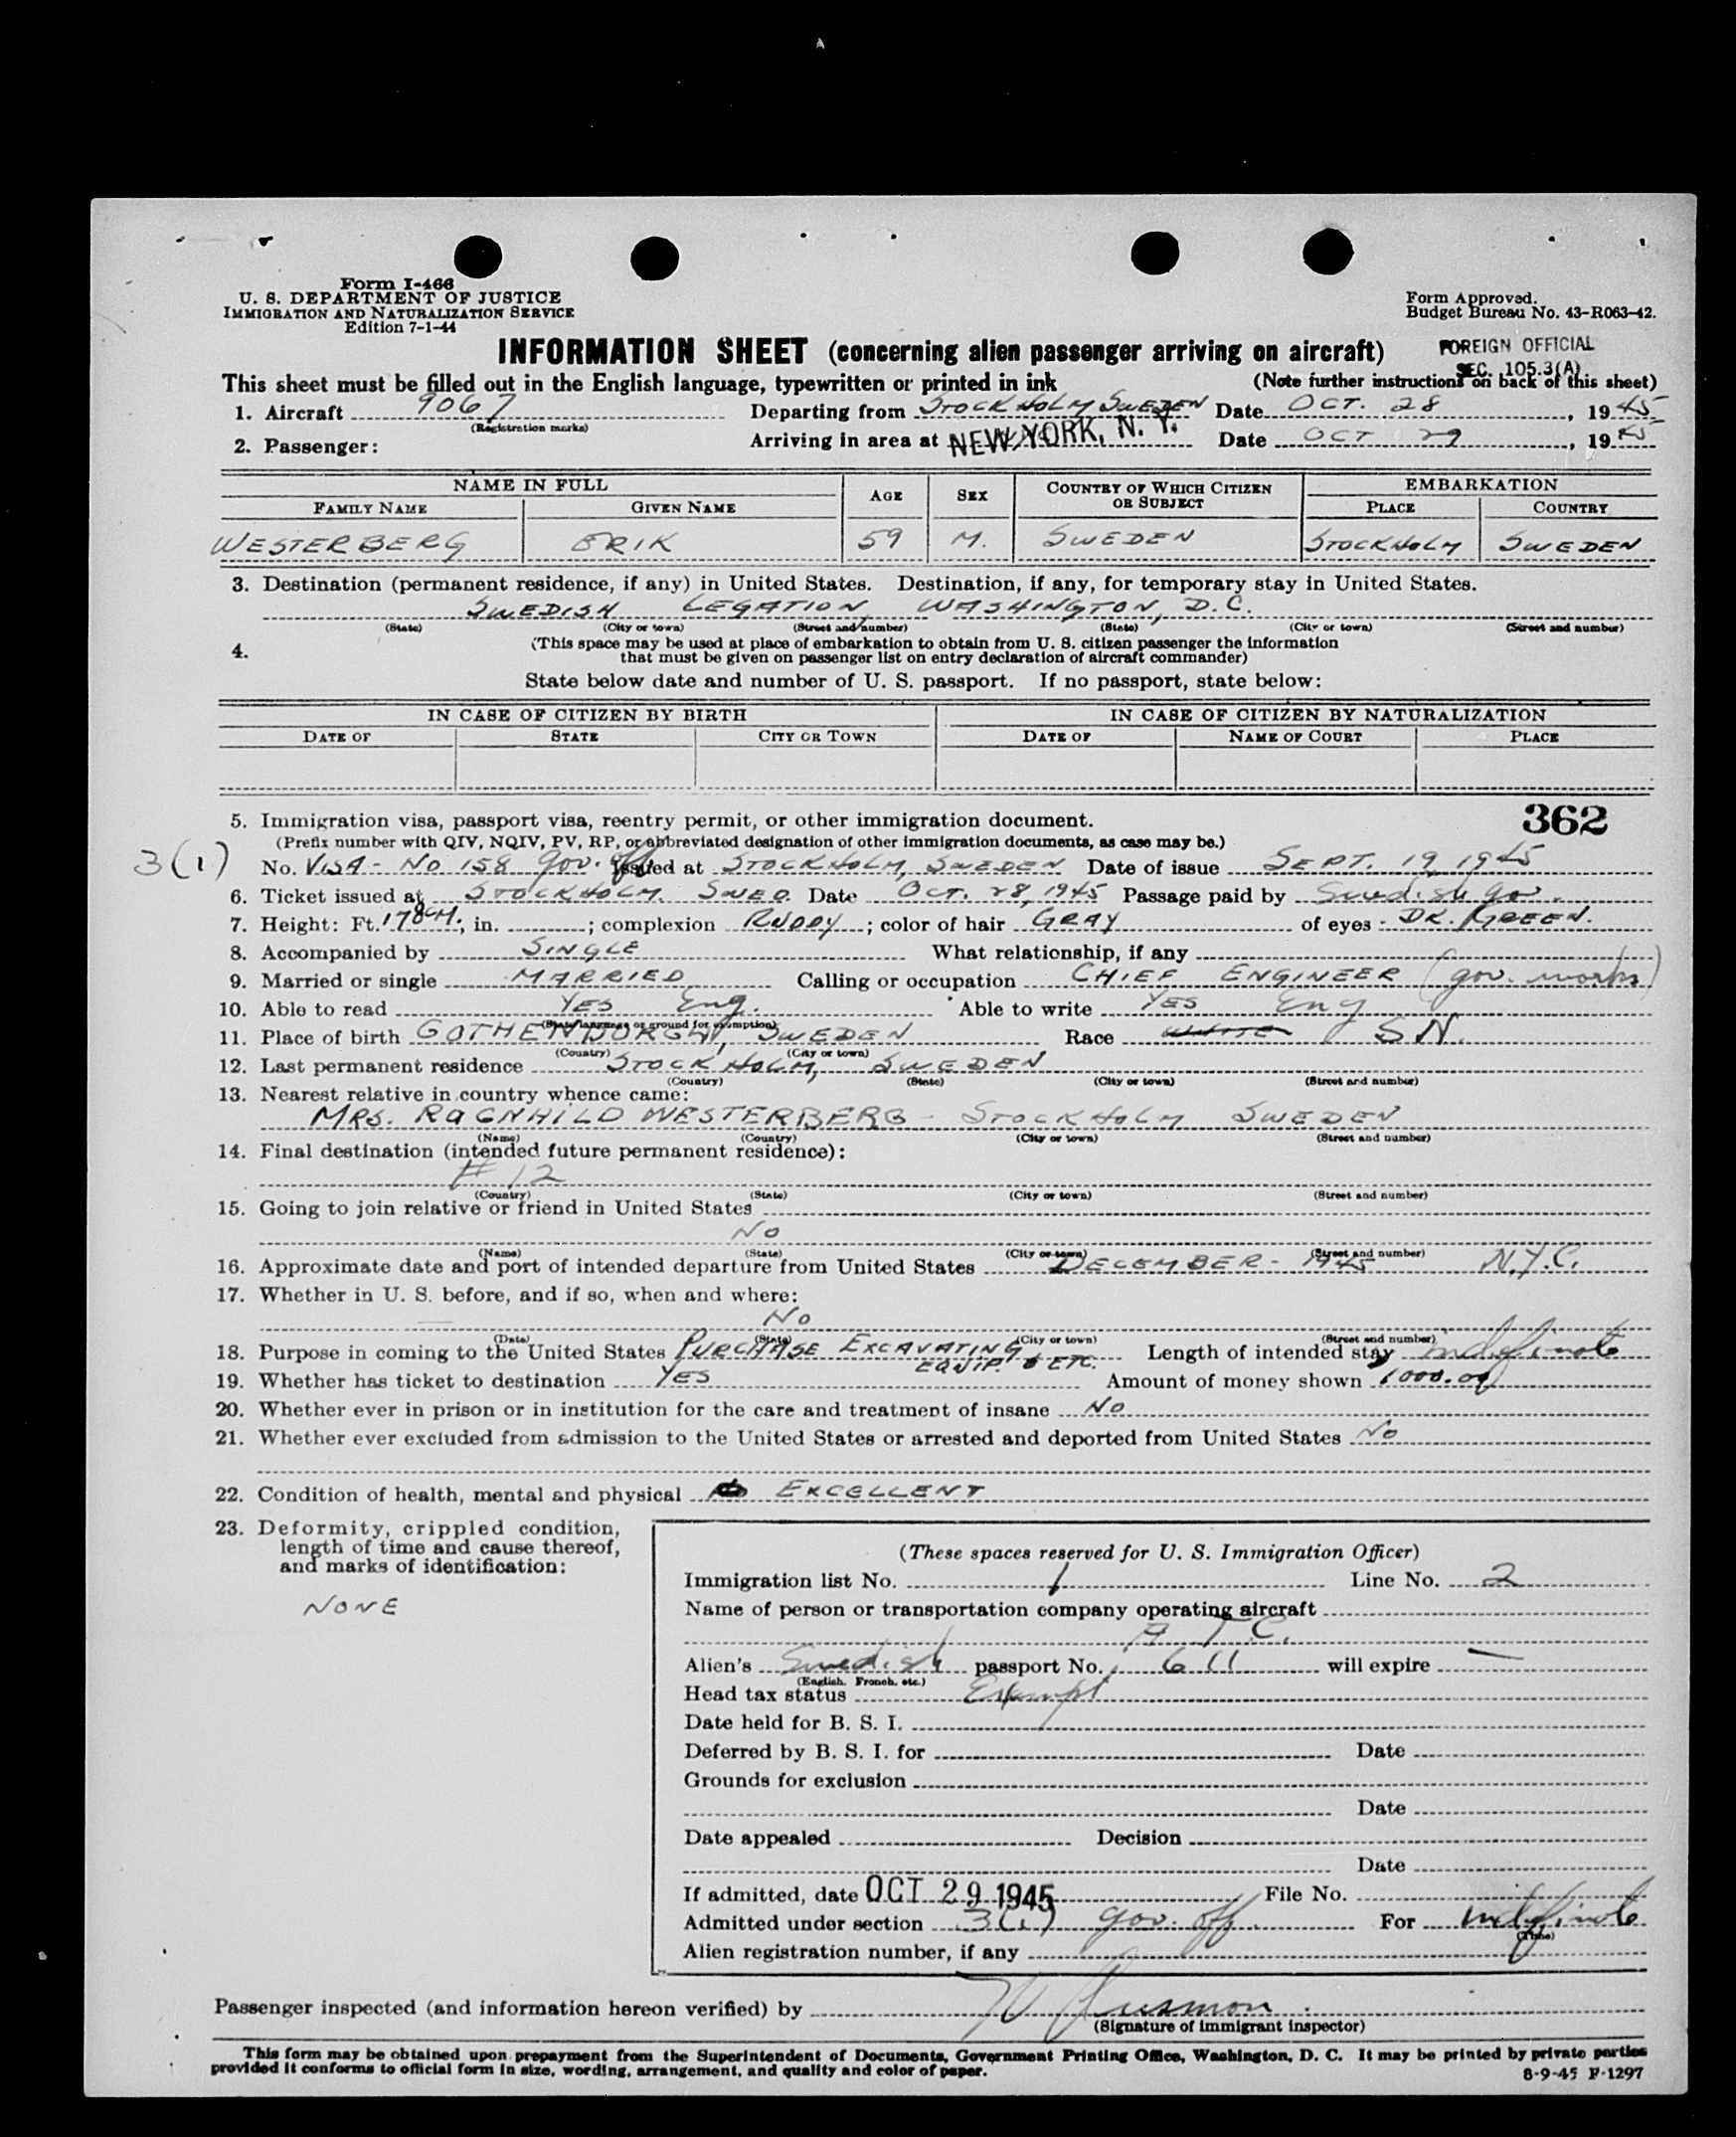 Form I-466
U. S. DEPARTMENT OF JUSTICE
IMMIGRATION AND NATURALIZATION SERVICE
Edition 7-1-44
Form Approved.
Budget Bureau No. 43-R063-42.
INFORMATION SHEET (concerning alien passenger arriving on aircraft)
FOREIGN OFFICIAL
SEC. 105.3(A)
This sheet must be filled out in the English language, typewritten or printed in ink (Note further instructions on back of this sheet)
1. Aircraft 9067 Departing from STOCKHOLM SWEDEN Date OCT. 28, 1945
(Registration marks)
2. Passenger: Arriving in area at NEW YORK, N. Y. Date OCT 29, 1945
NAME IN FULL AGE SEX COUNTRY OF WHICH CITIZEN OR SUBJECT EMBARKATION
FAMILY NAME GIVEN NAME PLACE COUNTRY
WESTERBERG ERIK 59 M. SWEDEN STOCKHOLM SWEDEN
3. Destination (permanent residence, if any) in United States. Destination, if any, for temporary stay in United States.
SWEDISH LEGATION, WASHINGTON, D.C.
(State) (City or town) (Street and number) (State) (City or town) (Street and number)
4. (This space may be used at place of embarkation to obtain from U. S. citizen passenger the information
that must be given on passenger list on entry declaration of aircraft commander)
State below date and number of U. S. passport. If no passport, state below:
IN CASE OF CITIZEN BY BIRTH IN CASE OF CITIZEN BY NATURALIZATION
DATE OF STATE CITY OR TOWN DATE OF NAME OF COURT PLACE
362
5. Immigration visa, passport visa, reentry permit, or other immigration document.
(Prefix number with QIV, NQIV, PV, RP, or abbreviated designation of other immigration documents, as case may be.)
3(1) No. VISA - No 158 gov. off Issued at STOCKHOLM, SWEDEN Date of issue SEPT. 19 1945
6. Ticket issued at STOCKHOLM. SWED. Date OCT. 28, 1945 Passage paid by Swedish gov.
7. Height: Ft. 178 CM., in. ; complexion RUDDY ; color of hair GRAY of eyes DK. GREEN.
8. Accompanied by SINGLE What relationship, if any
9. Married or single MARRIED Calling or occupation CHIEF ENGINEER (gov. works)
10. Able to read YES Eng. Able to write YES Eng
(State language or ground for exemption)
11. Place of birth GOTHENBURG, SWEDEN Race WHITE SN.
(Country) (City or town)
12. Last permanent residence STOCKHOLM, SWEDEN
(Country) (State) (City or town) (Street and number)
13. Nearest relative in country whence came:
MRS. RAGNHILD WESTERBERG - STOCKHOLM SWEDEN
(Name) (Country) (City or town) (Street and number)
14. Final destination (intended future permanent residence):
# 12
(Country) (State) (City or town) (Street and number)
15. Going to join relative or friend in United States
NO
(Name) (State) (City or town) (Street and number)
16. Approximate date and port of intended departure from United States DECEMBER - 1945 N.Y.C.
17. Whether in U. S. before, and if so, when and where:
NO
(Date) (State) (City or town) (Street and number)
18. Purpose in coming to the United States PURCHASE EXCAVATING EQUIP. & ETC. Length of intended stay indefinite
19. Whether has ticket to destination YES Amount of money shown 1000.00
20. Whether ever in prison or in institution for the care and treatment of insane NO
21. Whether ever excluded from admission to the United States or arrested and deported from United States NO
22. Condition of health, mental and physical EXCELLENT
23. Deformity, crippled condition,
length of time and cause thereof,
and marks of identification:
NONE
(These spaces reserved for U. S. Immigration Officer)
Immigration list No. 1 Line No. 2
Name of person or transportation company operating aircraft
A. T. C.
Alien's Swedish passport No. 611 will expire —
(English, French, etc.)
Head tax status Exempt
Date held for B. S. I.
Deferred by B. S. I. for Date
Grounds for exclusion
Date
Date appealed Decision
Date
If admitted, date OCT 29 1945 File No.
Admitted under section 3(1) gov. off. For indefinite
(Time)
Alien registration number, if any
Passenger inspected (and information hereon verified) by
(Signature of immigrant inspector)
This form may be obtained upon prepayment from the Superintendent of Documents, Government Printing Office, Washington, D. C. It may be printed by private parties
provided it conforms to official form in size, wording, arrangement, and quality and color of paper.
8-9-45 F-1297